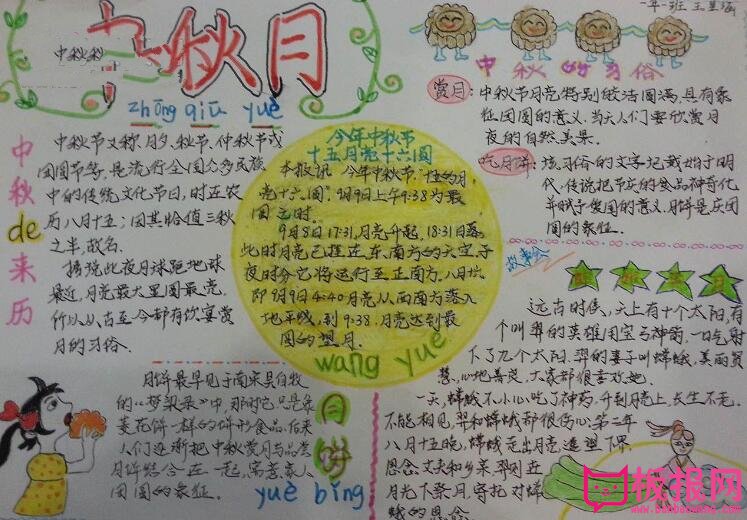 中秋月
中秋秋
zhōng qiū yuè
一年一班
中秋de来历
中秋节又称月夕、秋节、仲秋节或
团圆节等,是流行全国众多民族
中的传统文化节日,时正农
历八月十五;因其恰值三秋
之半,故名。
据说此夜月球距地球
最近,月亮最大里圆最亮,
所以从古至今都有饮宴赏
月的习俗。
今年中秋节
十五月亮十六圆
本报讯 今年中秋节,"
亮十六圆"。9月9日上午9:38为最
圆之时。
9月8日17:31,月亮升起,18:31日落
此时月亮已挂在东、南方的天空,子
夜时分它将运行至正南方。
即9月9日4:40月亮从西南方落入
地平线,到9:38,月亮达到最
圆的望月
wang yue
中秋的习俗
赏月:
中秋节月亮特别皎洁圆满,具有象
征团圆的意义,当天人们要欣赏月
夜的自然美景。
吃月饼:
该习俗的文字记载始于明
代,传说把节庆的食品神奇化
并赋予复圆的意义,月饼是庆团
圆的象征。
故事会
远古时候,天上有十个太阳,有
个叫羿的英雄用宝弓神箭,一口气射
下了九个太阳。羿的妻子叫嫦娥,美丽贤
慧、心地善良,大家都很喜欢她。
一天,嫦娥不小心吃了神药,升到月亮上,长生不老。
不能相见,羿和嫦娥都很伤心。第二年
八月十五晚,嫦娥走出月亮,遥望下界,
思念丈夫和乡亲,羿则近
月光下祭月,寄托对嫦
娥的思念
月饼
yuè bǐng
月饼最早见于南宋吴自牧
的《梦梁录》中,那时它
菱花饼一样的饼形食品。后来
人们逐渐把中秋赏月与品尝
月饼结合在一起,寓意家人
团圆的象征。
板报网
www.banbaowang.com